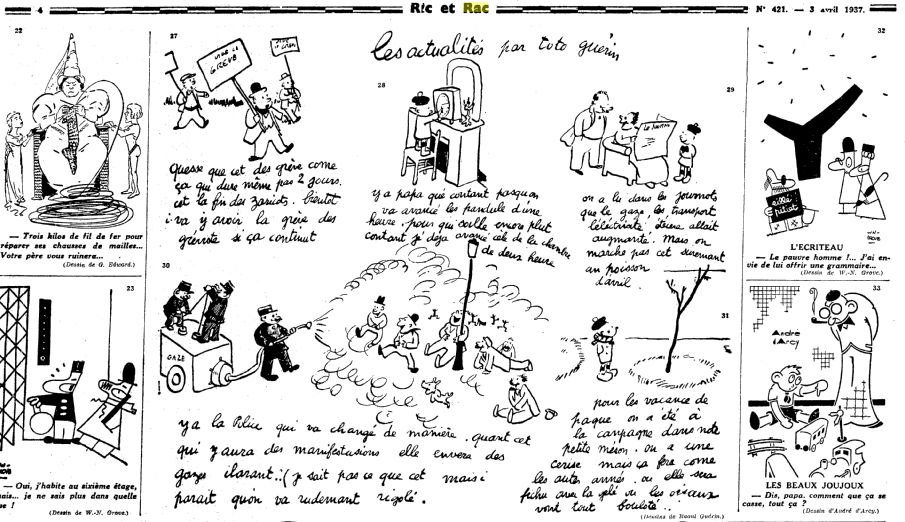 4
Ric et Rac
N° 421. — 3 avril 1937.
Les actualités par toto guérin
22
— Trois kilos de fil de fer pour
réparer ses chausses de mailles...
Votre père vous ruinera...
(Dessin de G. Edward.)
23
— Oui, j'habite au sixième étage,
mais... je ne sais plus dans quelle
!
(Dessin de W.-N. Grove.)
27
VIVE LA
GREVE
VIVE LA
GREVE
Quesse que cet des grève come
ça qui dure même pas 2 jours.
cet la fin des zaricots. bientot
i va y avoir la grève des
grévistes si ça continut
28
y a papa qué contant pasquon
va avancé les pandule d'une
heure. pour qui soille encore plut
contant j'déja avancé celle de la chambre
de deux heure
29
LE JOURNAL
on a lu dans les journots
que le gaze, les transport
l'élécitrité. Lune allait
augmanté. Mais on
marche pas cet surement
un poisson
d'avril.
30
GAZE
y a la Police qui va changé de manière. quant cet
qui y aura des manifestasions elle envera des
gazes ilarant..( je sait pas ce que cet mais i
parait quon va rudemant rigolé.
31
pour les vacance de
paque on a été à
la campagne dans note
petite méson. on a une
cerise mais ça fera come
les autes années. ou elle sera
fichue avec la gelé ou les oiseaux
vont tout bouloté..
(Dessins de Raoul Guérin.)
32
L'ECRITEAU
— Le pauvre homme !... J'ai en-
vie de lui offrir une grammaire...
(Dessin de W.-N. Grove.)
33
André
d'Arcy
LES BEAUX JOUJOUX
— Dis, papa. comment que ça se
casse, tout ça ?
(Dessin d'André d'Arcy.)